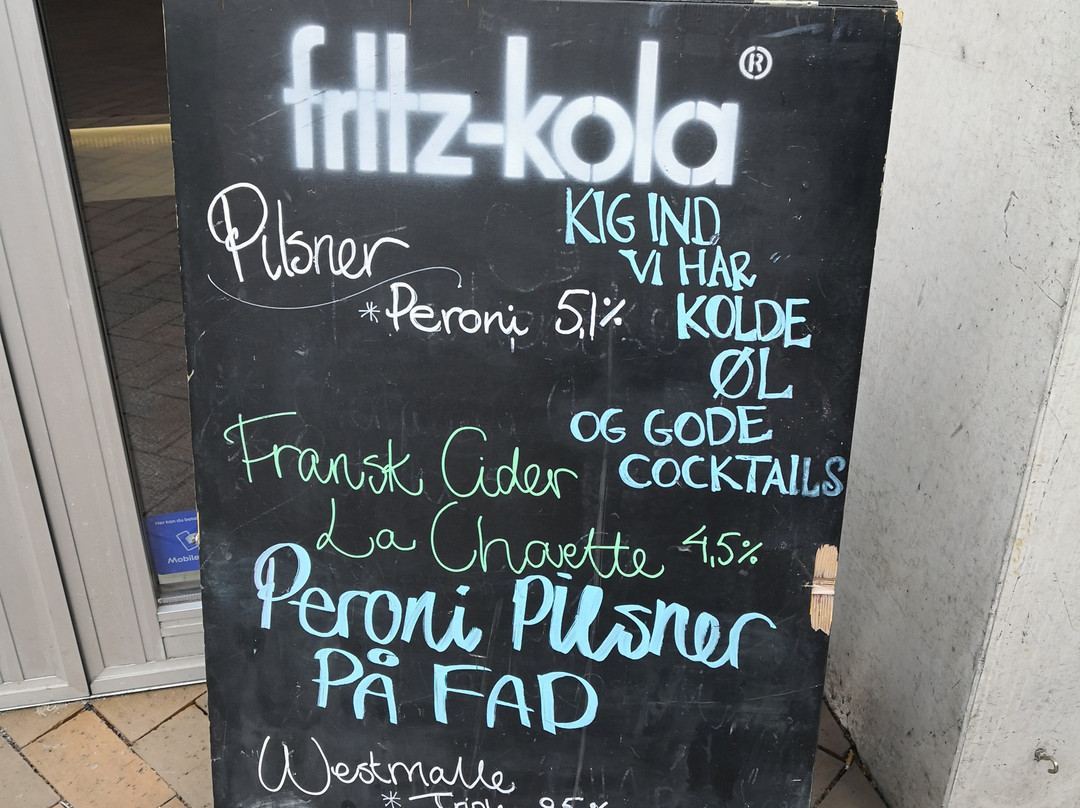 fritz-kola®
Pilsner
*Peroni 5,1%
KIG IND
VI HAR
KOLDE
ØL
OG GODE
COCKTAILS
Fransk Cider
La Chouette 4,5%
Peroni Pilsner
PÅ FAD
Westmalle
Her kan du
Mobile